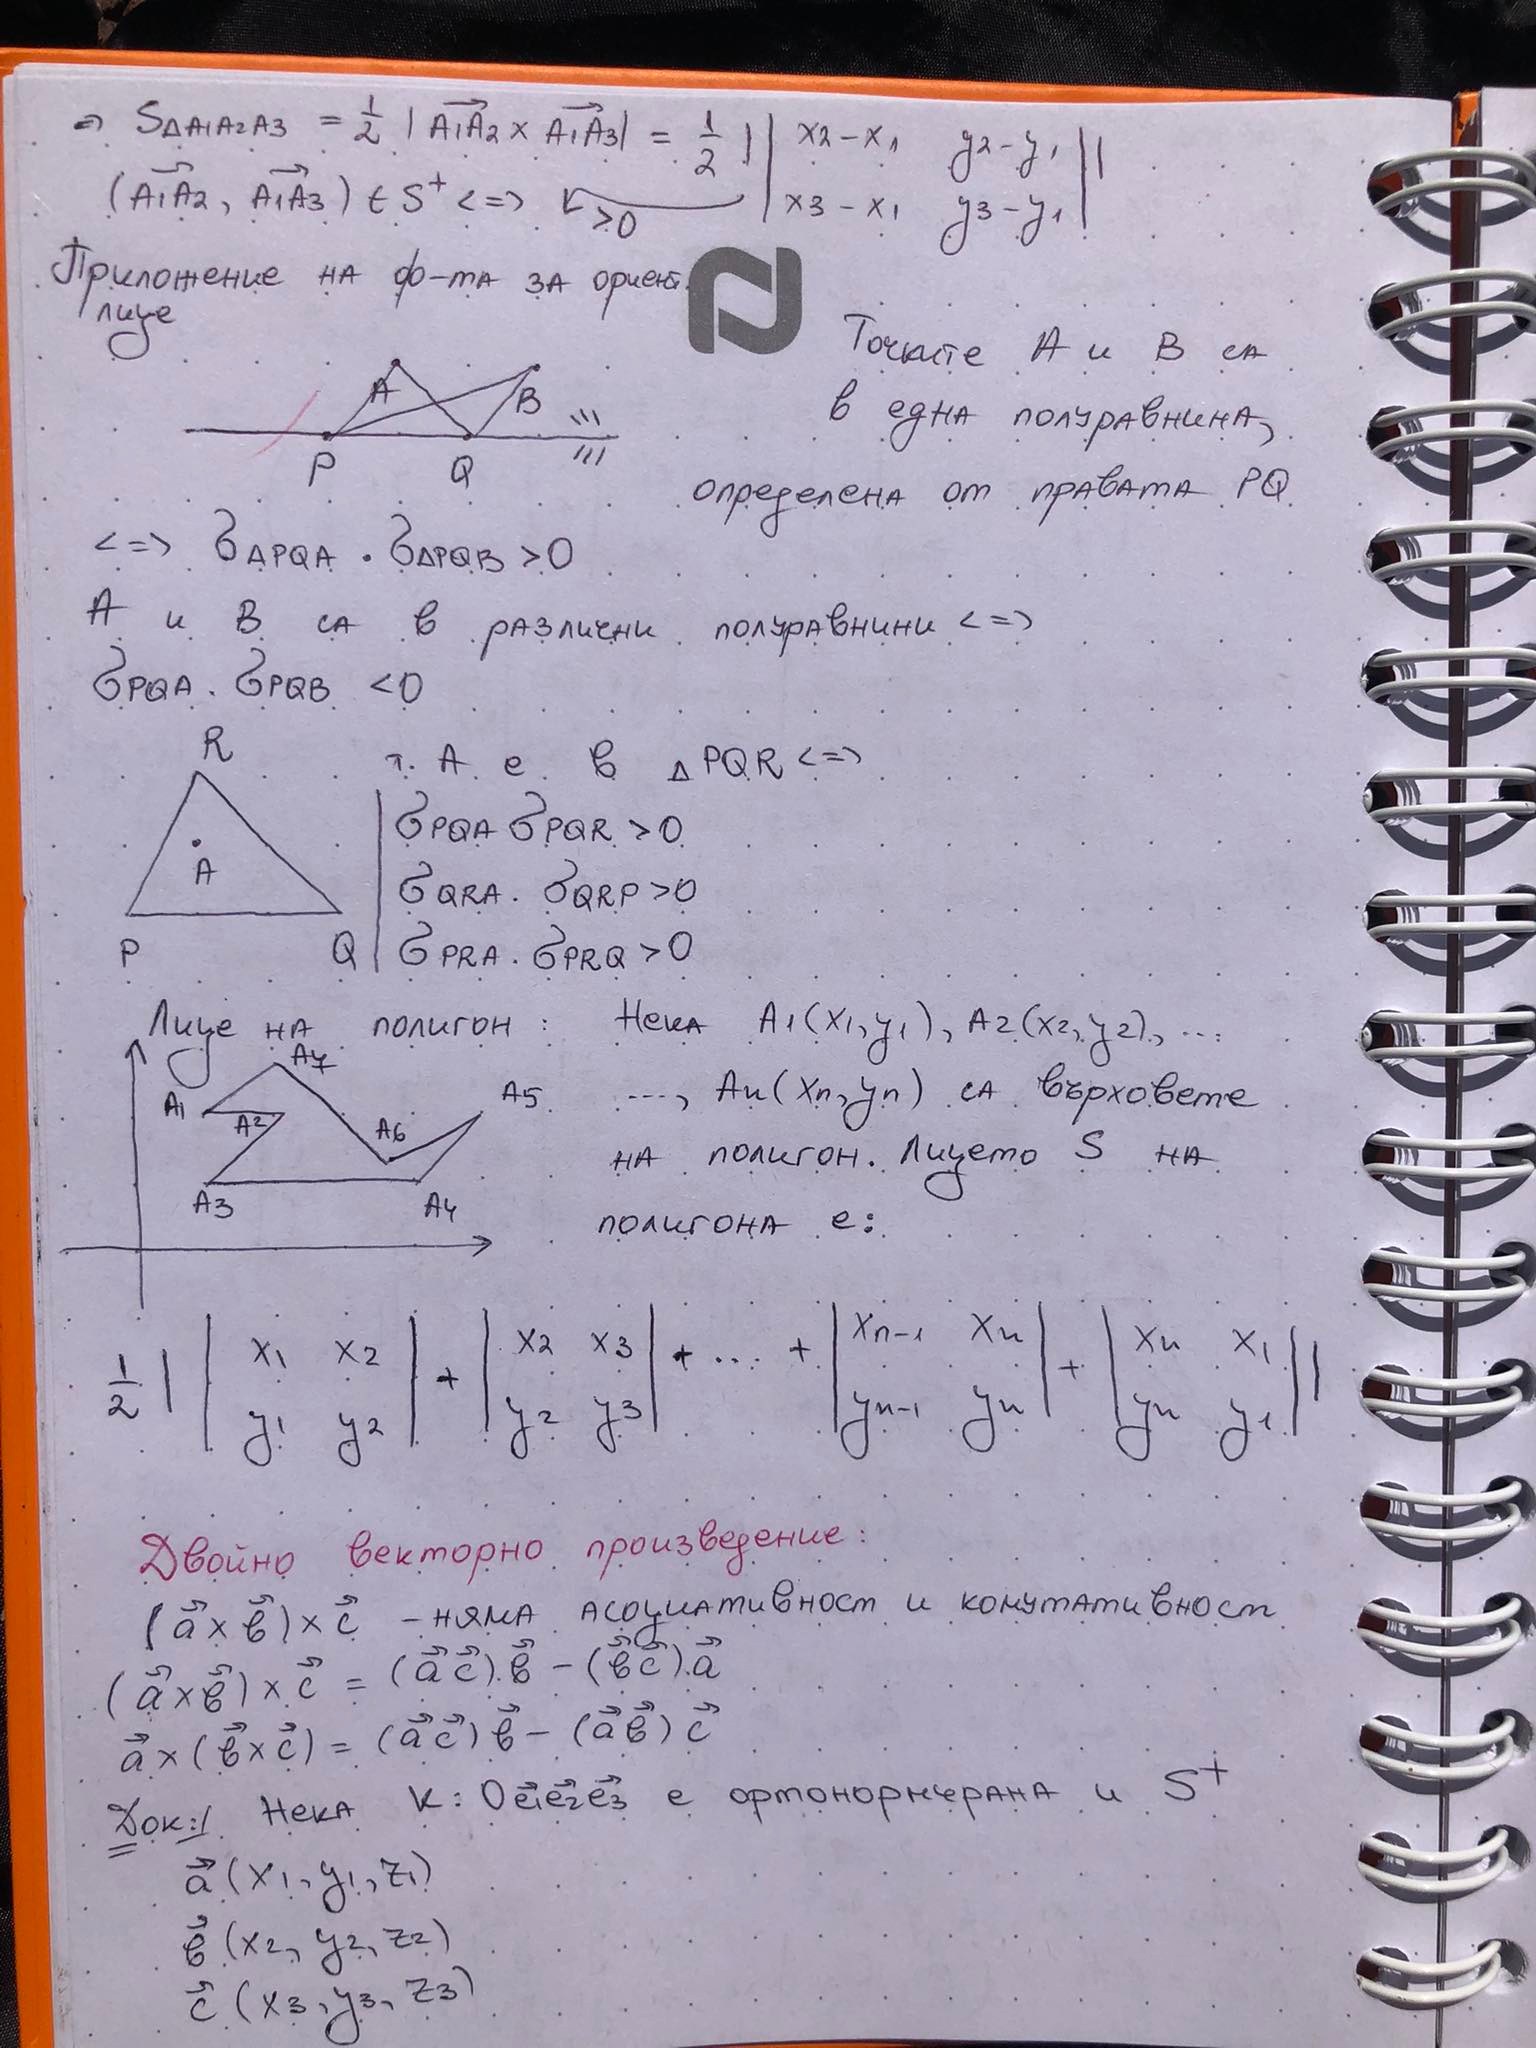 => S△A1A2A3 = 1/2 |A1A2 × A1A3| = 1/2 | | x2-x1 y2-y1 | |
(A1A2, A1A3) ∈ S+ <=> >0 | x3-x1 y3-y1 |
Приложение на ф-та за ориент.
лице
Точките A и B са
в една полуравнина,
определена от правата PQ
A B
P Q
<=> σ△PQA . σ△PQB > 0
A и B са в различни полуравнини <=>
σPQA . σPQB < 0
R
A
P Q
т. A е в △PQR <=>
σPQA σPQR > 0
σQRA . σQRP > 0
σPRA . σPRQ > 0
Лице на полигон: Нека A1(x1,y1), A2(x2,y2), ...
..., An(xn,yn) са върховете
на полигон. Лицето S на
полигона е:
A7
A1 A2 A5
A6
A3 A4
1/2 | | x1 x2 | + | x2 x3 | + ... + | xn-1 xn | + | xn x1 | |
| y1 y2 | | y2 y3 | | yn-1 yn | | yn y1 |
Двойно векторно произведение:
(a⃗ × b⃗) × c⃗ - няма асоциативност и комутативност
(a⃗ × b⃗) × c⃗ = (a⃗ c⃗).b⃗ - (b⃗ c⃗).a⃗
a⃗ × (b⃗ × c⃗) = (a⃗ c⃗) b⃗ - (a⃗ b⃗) c⃗
Док:1 Нека K: Oe⃗1e⃗2e⃗3 е ортонормирана и S+
a⃗ (x1, y1, z1)
b⃗ (x2, y2, z2)
c⃗ (x3, y3, z3)